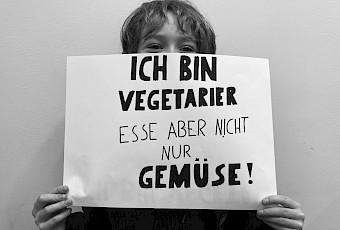 ICH BIN
VEGETARIER
ESSE ABER NICHT
NUR
GEMÜSE!